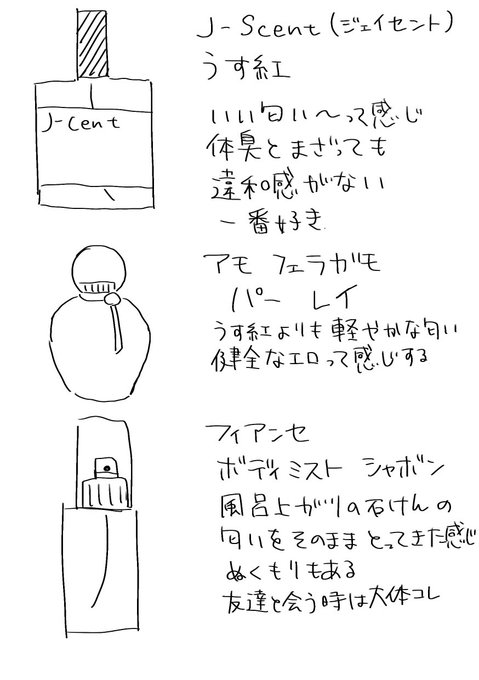 J-Scent(ジェイセント)
うす紅
J-cent
いい匂い〜って感じ
体臭とまざっても
違和感がない
一番好き
アモ フェラガモ
パー レイ
うす紅よりも軽やかな匂い
健全なエロって感じする
フィアンセ
ボディミスト シャボン
風呂上がりの石けんの
匂いをそのままとってきた感じ
ぬくもりもある
友達と会う時は大体コレ